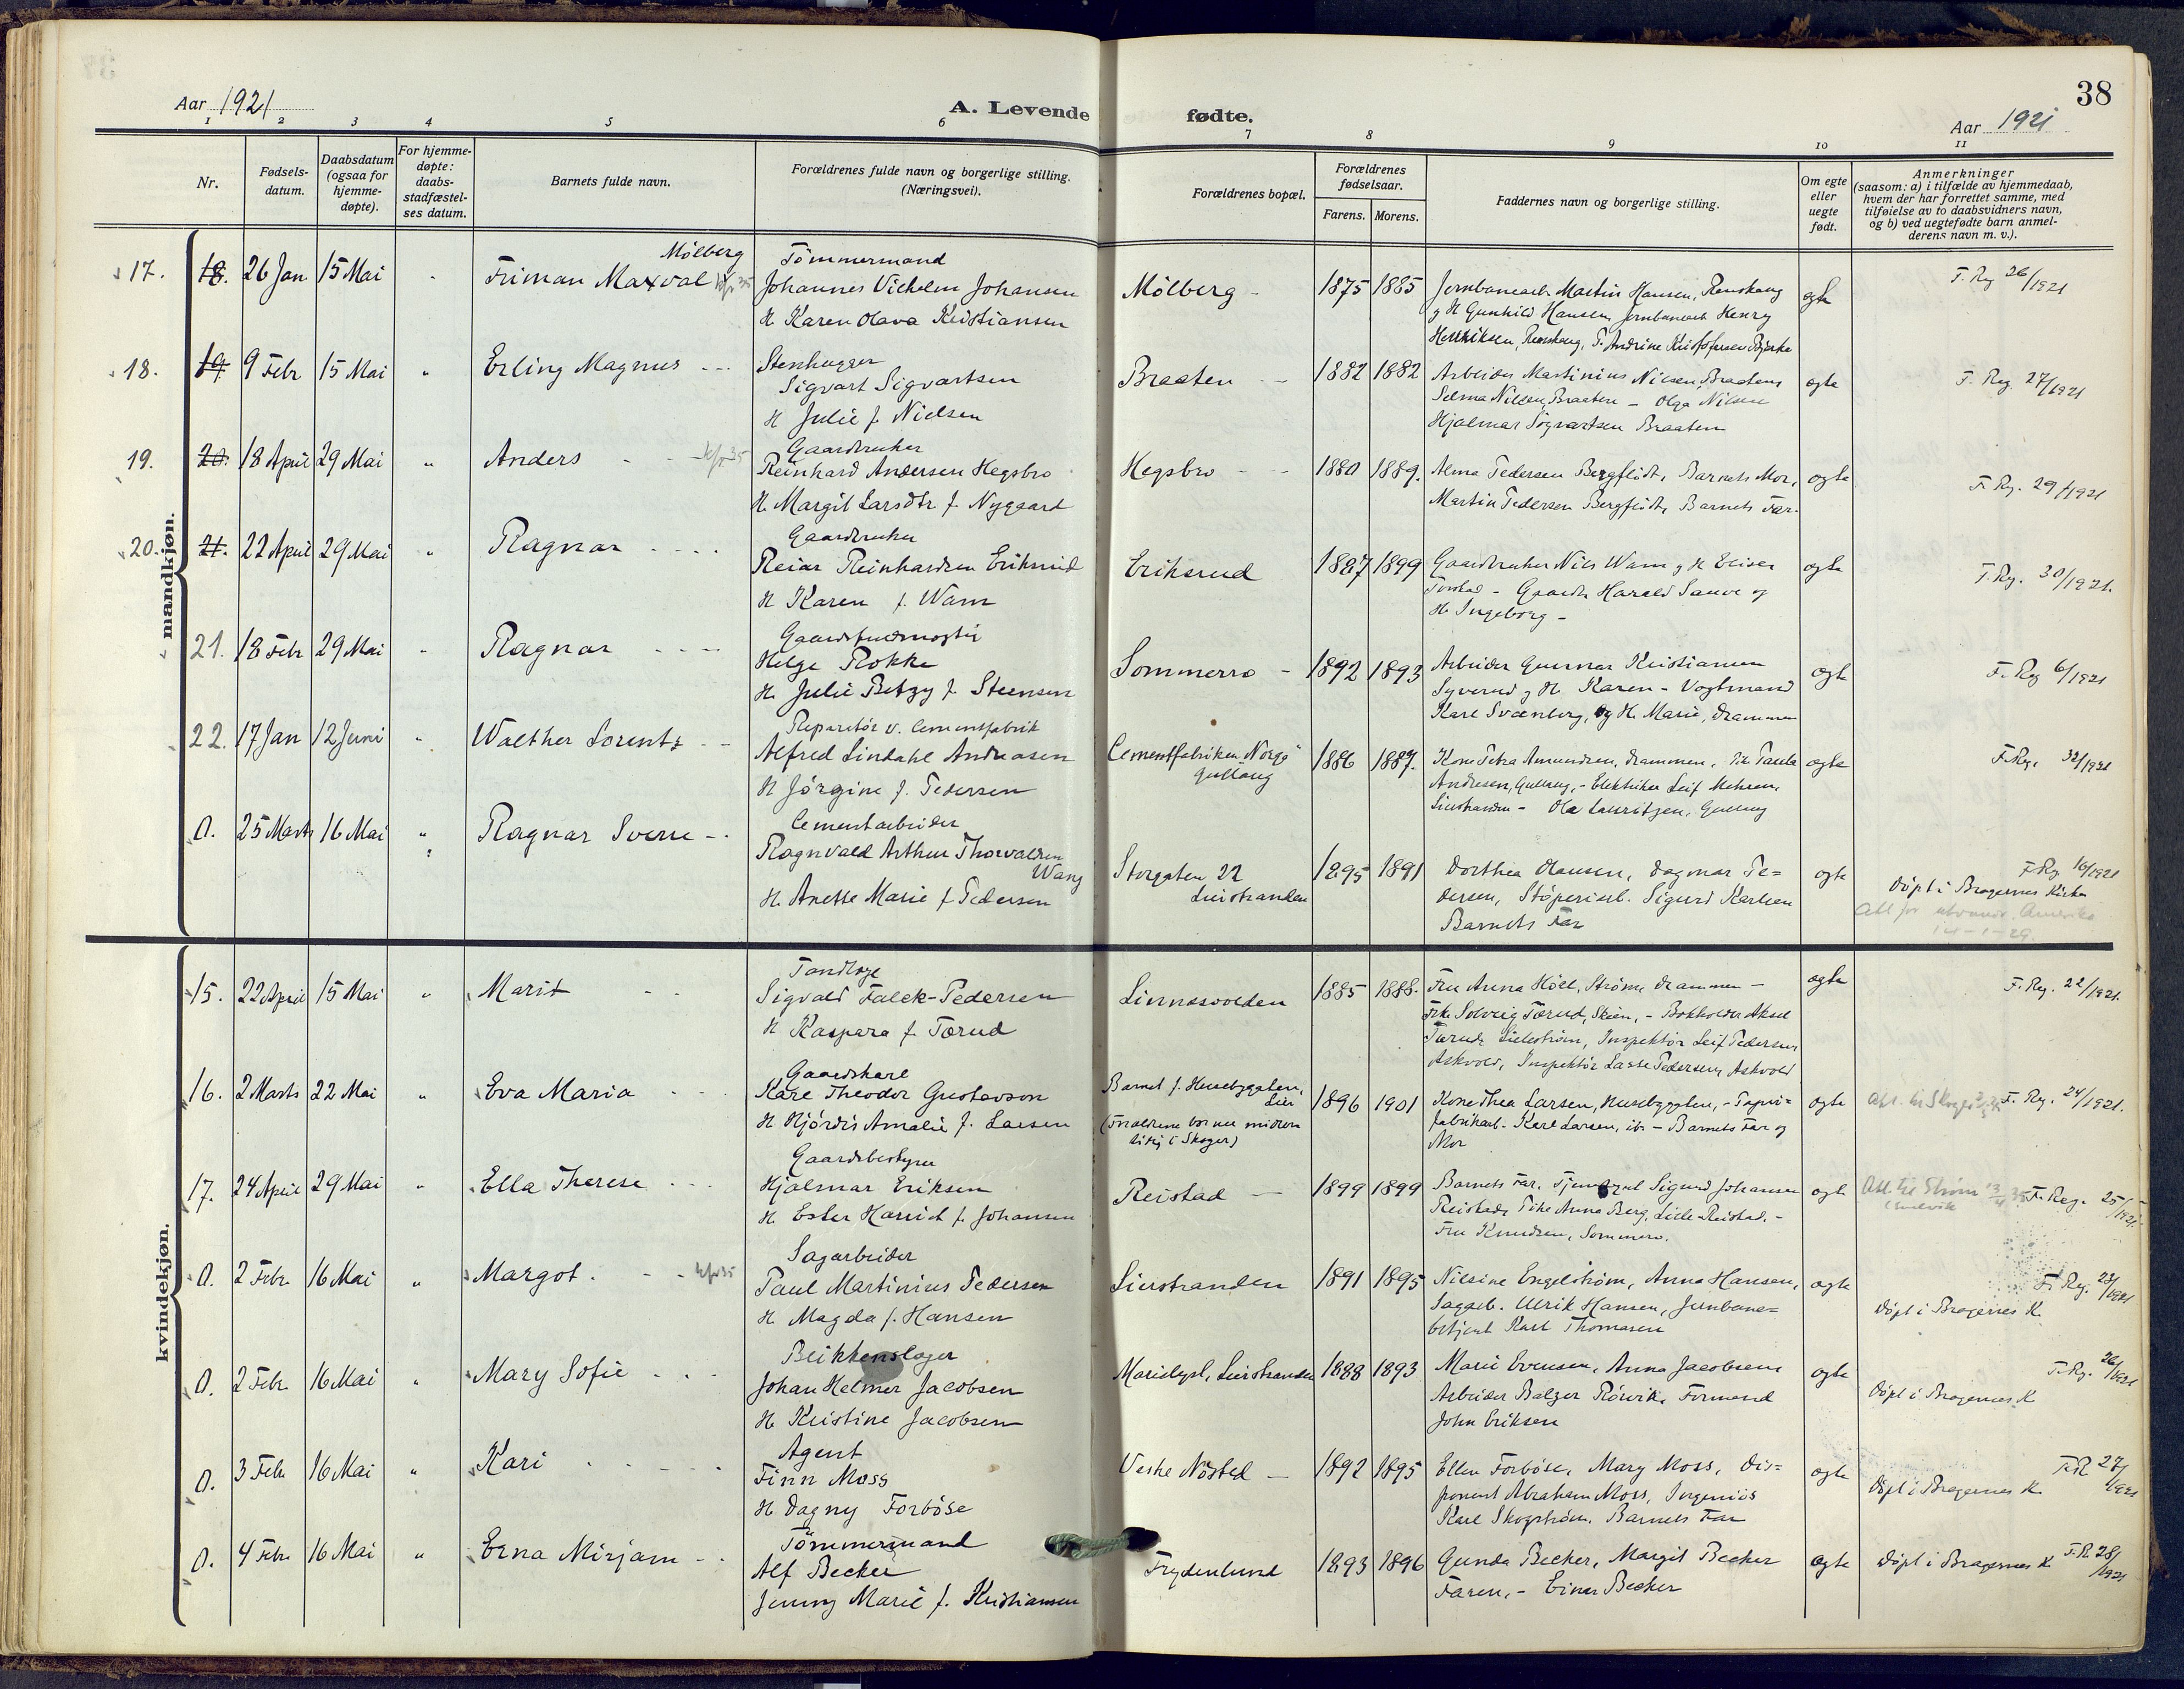 38
Aar 1921
A. Levende fødte.
Aar 1921
1 2 3 4 5 6 7 8 9 10 11
Nr.
Fødsels-
datum.
Daabsdatum
(ogsaa for
hjemme-
døpte).
For hjemme-
døpte:
daabs-
stadfæstel-
ses datum.
Barnets fulde navn.
Forældrenes fulde navn og borgerlige stilling.
(Næringsvei).
Forældrenes bopæl.
Forældrenes
fødselsaar.
Farens. Morens.
Faddernes navn og borgerlige stilling.
Om egte
eller
uegte
født.
Anmerkninger
(saasom: a) i tilfælde av hjemmedaab,
hvem der har forrettet samme, med
tilføielse av to daabsvidners navn,
og b) ved uegtefødte barn anmel-
derens navn m. v.).
mandkjøn.
17. 18. 26 Jan 15 Mai
Mølberg
Friman Maxval
Tömmermand
Johannes Vilhelm Johansen
H. Karen Olava Kristiansen
Mölberg
1875 1885
Jernbanearb. Martin Hansen, Renskaug
og H Gunhild Hansen, Jernbanearb Henry
Henriksen, Renskaug,
egte
F. Reg 26/1921
18. 19. 9 Febr 15 Mai "
Erling Magnus
Stenhugger
Sigvart Sigvartsen
H Julie f. Nielsen
Braaten
1882 1882
Arbeider Martinius Nilsen, Braaten,
Selma Nilsen, Braaten - Olga Nilsen
Hjalmar Sigvartsen Braaten
egte
F. Reg. 27/1921
19. 20. 18 April 29 Mai "
Anders
Gaardbruker
Reinhard Andersen Hegsbro
H. Margit Larsdtr f. Nygaard
Hegsbro
1880 1889.
Alma Pedersen Bergflödt, Barnets Mor,
Martin Pedersen Bergflödt, Barnets Far.
egte
F. Reg. 29/1921
20. 21. 22 April 29 Mai "
Ragnar
Gaardbruker
Reiar Reinhardsen Eriksrud
H Karen f. Wam
Eriksrud
1887 1899
Gaardbruker Nils Wam og H
Gaardb. Harald Sauve og
H. Ingeborg -
egte
F. Reg. 30/1921.
21. 18 Febr 29 Mai "
Ragnar
Helge Rokke
H. Julie Betzy f. Steensen
Sommerro
1892 1893
Arbeider Gunnar Kristiansen
Syverud og H. Karen - Vogtmand
Karl Svænberg, og H. Marie, Drammen
egte
F. Reg 6/1921
22. 17 Jan 12 Juni "
Walther Lorentz
Reparatör v. Cementfabrik
Alfred Lindahl Andreasen
H Jörgine f. Pedersen
Cementfabriken Norge
Gullaug
1886 1887.
Kone Petra Amundsen, Drammen, Pike Paula
Andresen, Gullaug, - Elektriker Leif
Lierstranden - Ole Lauritzen, Gullaug
egte
F. Reg. 32/1921
0. 25 Marts 16 Mai "
Ragnar Sverre
Cementarbeider
Ragnvald Arthur Thorvaldsen
Wang
H. Anette Marie f Pedersen
Storgaten 22
Lierstranden
1895 1891
Dorthea Hansen, Dagmar Pe=
dersen, Stöperiarb. Sigurd Karlsen
Barnets Far
egte
F. Reg 16/1921
Döpt i Bragernes Kirke
Att for utvandr. Amerika
kvindekjøn.
15. 22 April 15 Mai "
Marit
Tandlæge
Sigvald Falck-Pedersen
H Kaspara f. Tørud
Linnesvolden
1885 1888.
Fru Anna Höll, Strömm Drammen -
Frk. Solveig Tørud, Skien, - Bokholder Aksel
Tørud, Lilleström, Inspektör Leif Pedersen
Askvold, Inspektör Lasse Pedersen, Askvold
egte
F. Reg. 22/1921.
16. 2 Marts 22 Mai "
Eva Maria
Gaardskarl
Karl Theodor Gustavson
H Hjördis Amalie f. Larsen
Barnet f. Husebygaten,
Lier
(Forældrene bor nu midler
tidig i Skoger)
1896 1901
Kone Thea Larsen, Husebygaten, - Papir=
fabrikarb. Karl Larsen, ib. - Barnets Far og
Mor
egte
F. Reg. 24/1921.
17. 24 April 29 Mai "
Ella Therese
Gaardsbestyrer
Hjalmar Eriksen
H. Ester Harriet f. Johansen
Reistad
1899 1899
Barnets Far, Sigurd Johansen
Reistad, Pike Anna Berg, Lille-Reistad, -
Fru Knudsen, Sommero.
egte
F. Reg. 25/1921.
0. 2 Febr 16 Mai "
Margot.
Sagarbeider
Paul Martinius Pedersen
H. Magda f. Hansen
Lierstranden
1891 1895
Nilsine Engelström, Anna Hansen,
Sagarb. Ulrik Hansen, Jernbane=
betjent Karl Thomasen
egte
F. Reg. 23/1921
Döpt i Bragernes K.
0. 2 Febr 16 Mai "
Mary Sofie
Blikkenslager
Johan Helmer Jacobsen
H. Kristine Jacobsen
Marielyst, Lierstranden
1888 1893
Marie Evensen, Anna Jacobsen,
Arbeider Balzer Rörvik, Formand
John Eriksen
egte
F. Reg. 26/1921
Döpt i Bragernes K
0. 3 Febr 16 Mai "
Kari
Agent
Finn Moss
H Dagny Forböse
Vestre Nösted
1892 1895
Ellen Forböse, Mary Moss, Dis=
ponent Abraham Moss, Ingeniör
Karl Skogström, Barnets Far
egte
F. R 27/1921
Döpt i Bragernes K
0. 4 Febr 16 Mai "
Erna Mirjam
Tömmermand
Alf Becker
Jenny Marie f. Kristiansen
Frydenlund
1893 1896
Gunda Becker, Margit Becker
Faren, - Einar Becker
egte
Döpt i Bragernes K F. R 28/1921